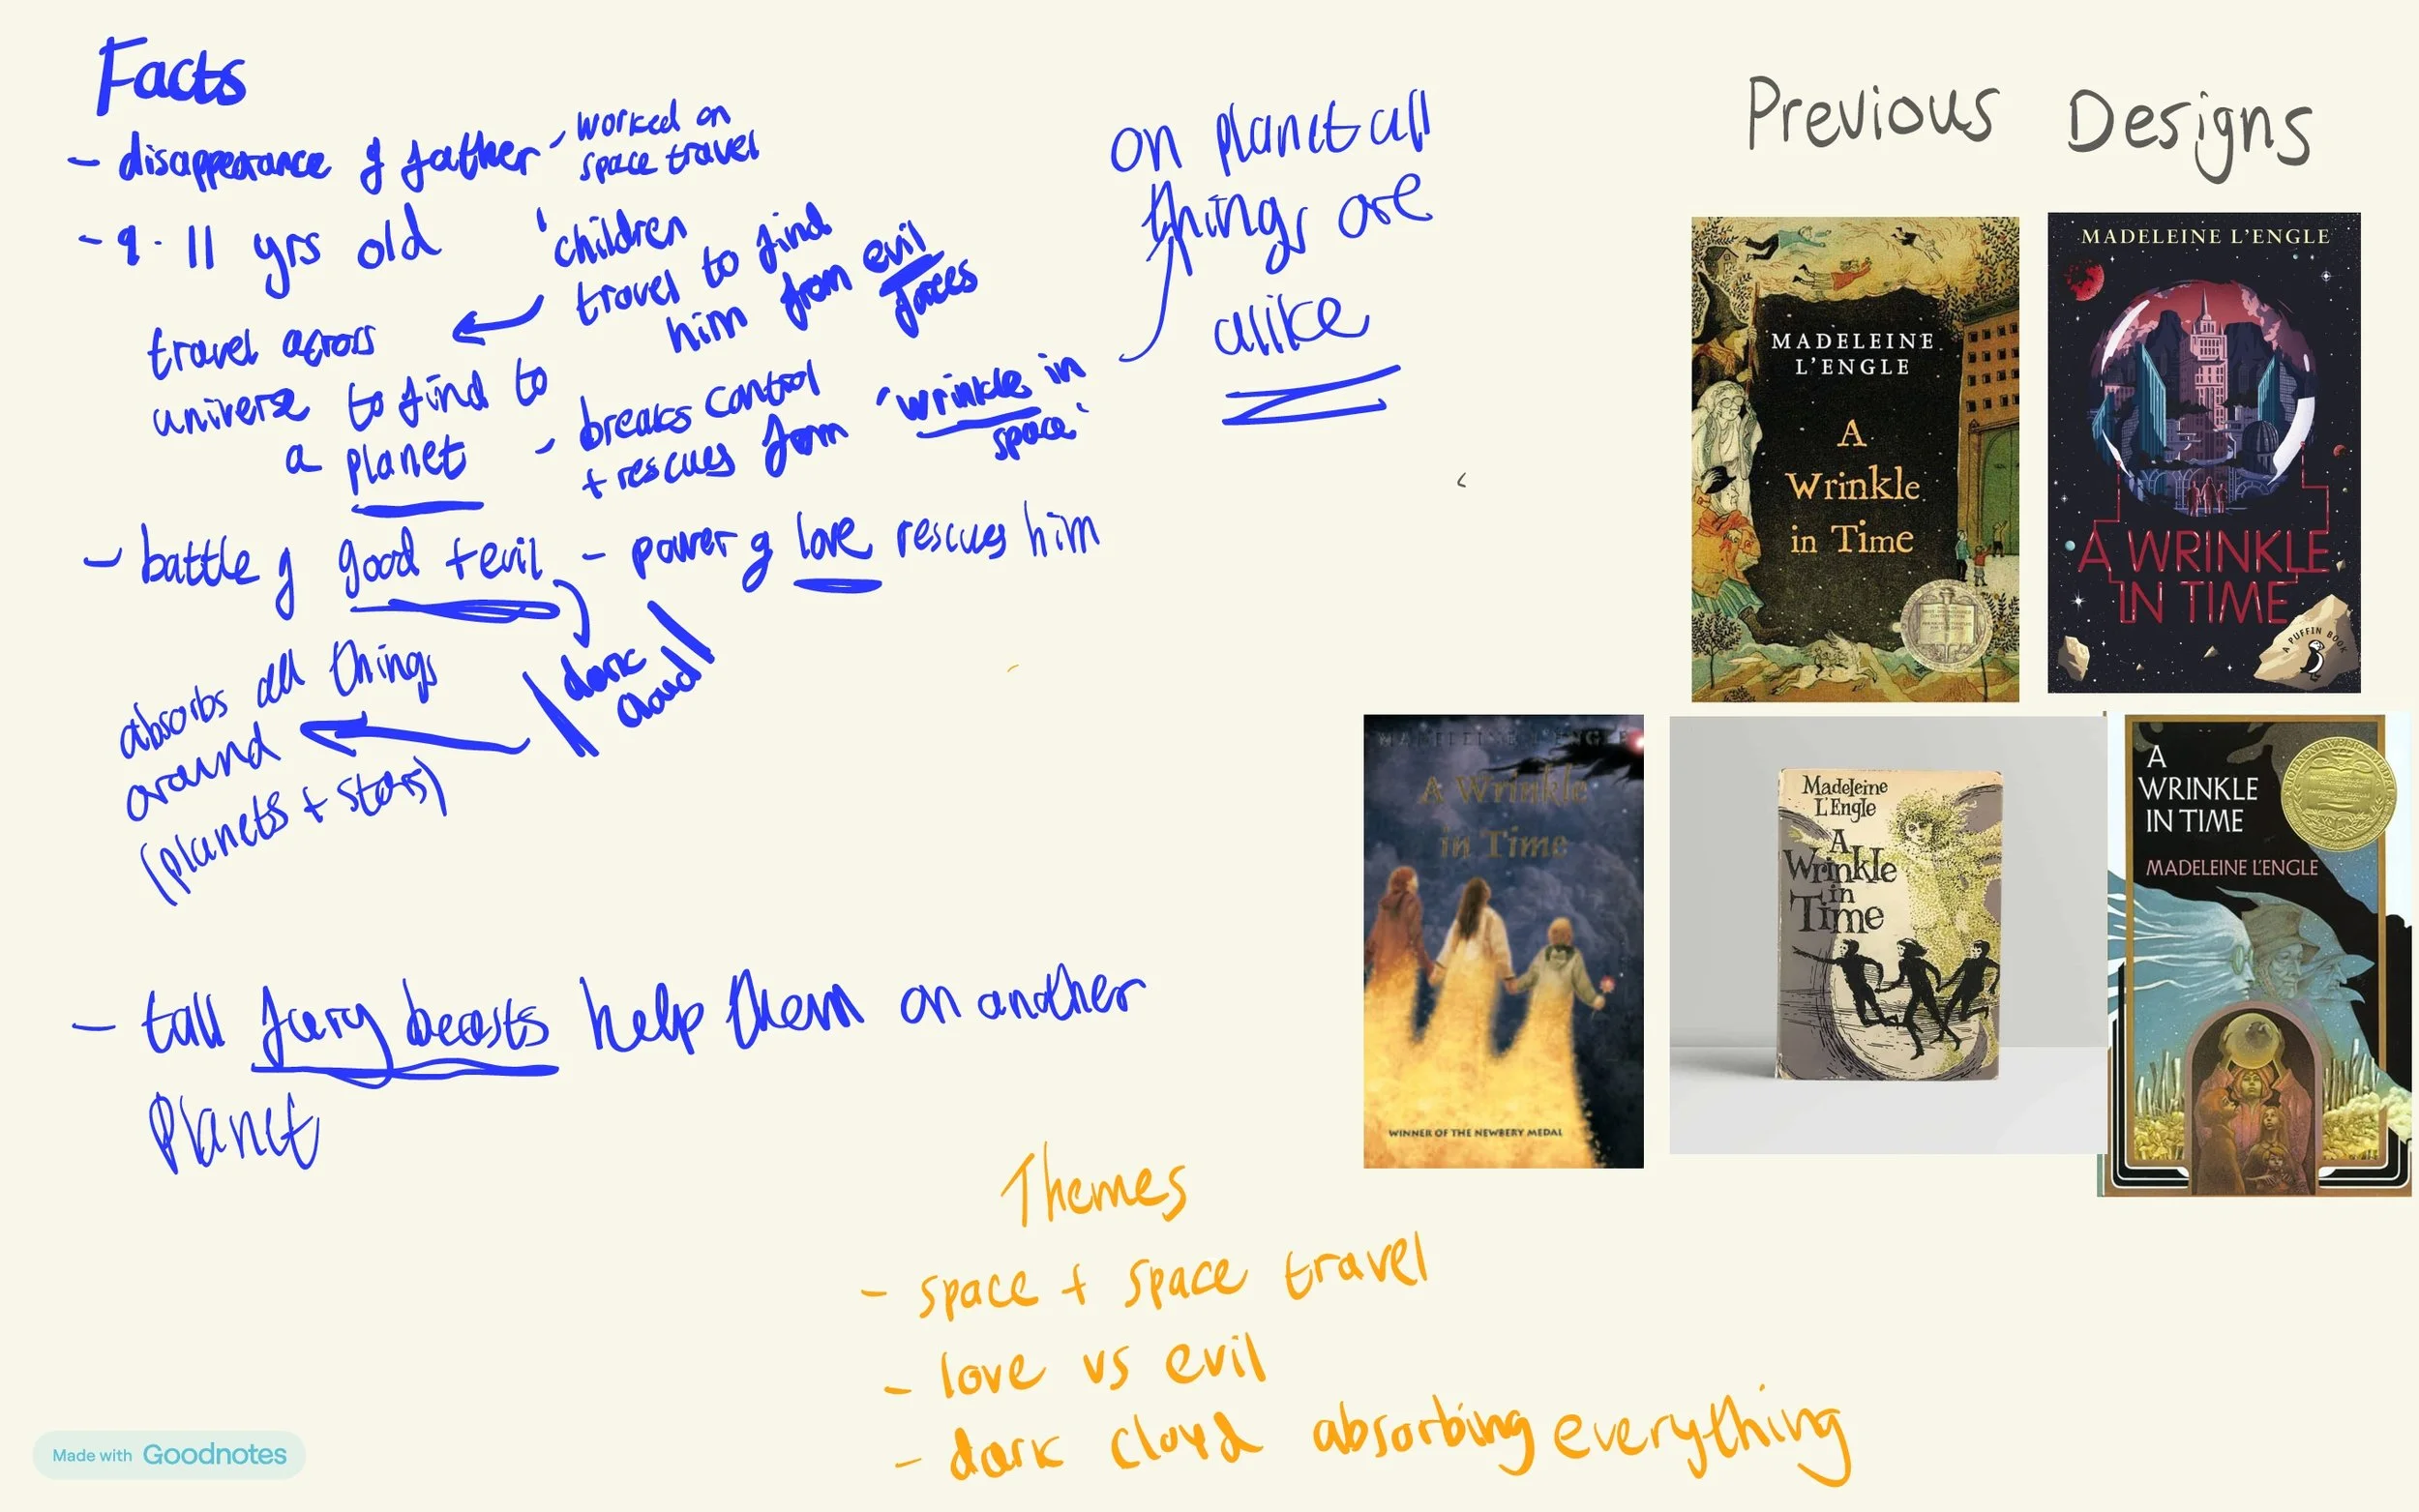 Facts
- disappearance of father - worked on
space travel
- 9-11 yrs old
'children
travel to find
him from evil
forces
travel across
universe to find to
a planet
- breaks control
+ rescues from 'wrinkle in
space'
on planet all
things are
alike
- battle of good + evil - power of love rescues him
dark
cloud
absorbs all things
around
(planets + stars)
- tall furry beasts help them on another
Planet
Themes
- space + space travel
- love vs evil
- dark cloud absorbing everything
Previous Designs
MADELEINE
L'ENGLE
A
Wrinkle
in Time
MADELEINE L'ENGLE
A WRINKLE
IN TIME
A PUFFIN BOOK
MADELEINE L'ENGLE
A Wrinkle
in Time
WINNER OF THE NEWBERY MEDAL
Madeleine
L'Engle
A
Wrinkle
in
Time
A
WRINKLE
IN TIME
MADELEINE L'ENGLE
Made with Goodnotes